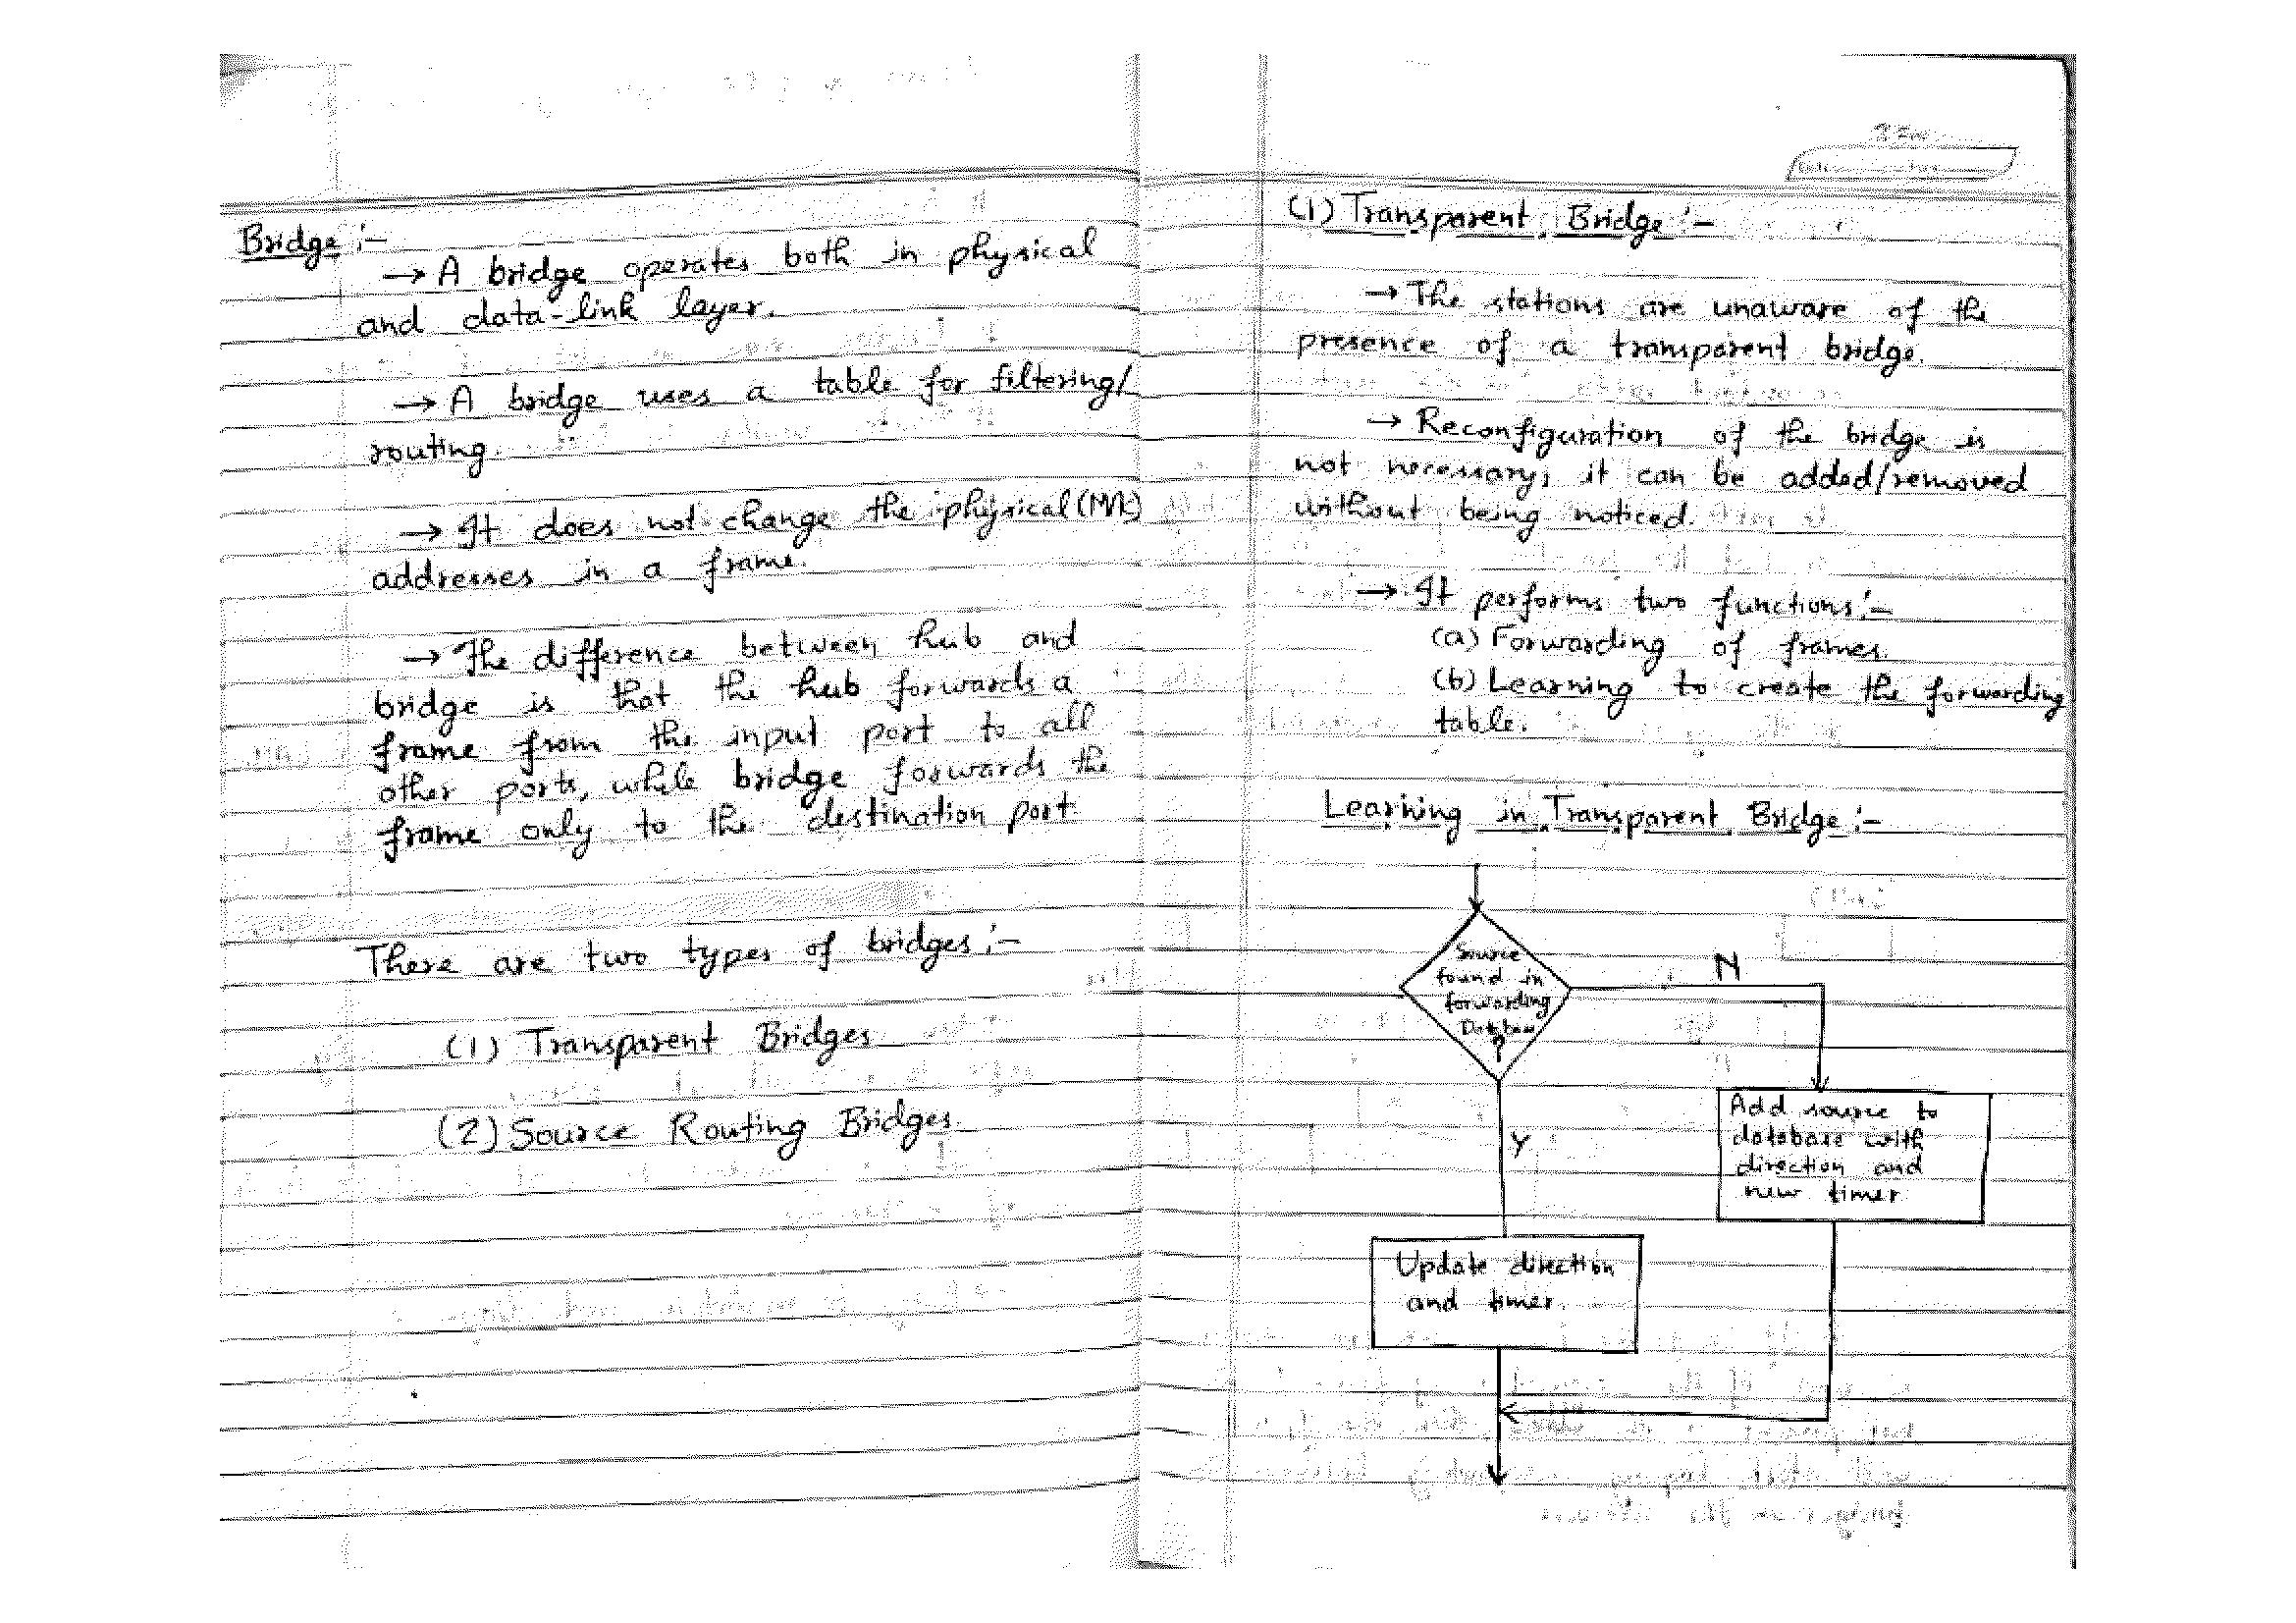 Bridge :-
→ A bridge operates both in physical
and data-link layer.
→ A bridge uses a table for filtering/
routing.
→ It does not change the physical (MAC)
addresses in a frame.
→ The difference between hub and
bridge is that the hub forwards a
frame from the input port to all
other ports, while bridge forwards the
frame only to the destination port.
There are two types of bridges :-
(1) Transparent Bridges
(2) Source Routing Bridges.
(1) Transparent Bridge :-
→ The stations are unaware of the
presence of a transparent bridge.
→ Reconfiguration of the bridge is
not necessary; it can be added/removed
without being noticed.
→ It performs two functions :-
(a) Forwarding of frames.
(b) Learning to create the forwarding
table.
Learning in Transparent Bridge :-
Source
found in
forwarding
Database
?
N
Y
Add source to
database with
direction and
new timer
Update direction
and timer.